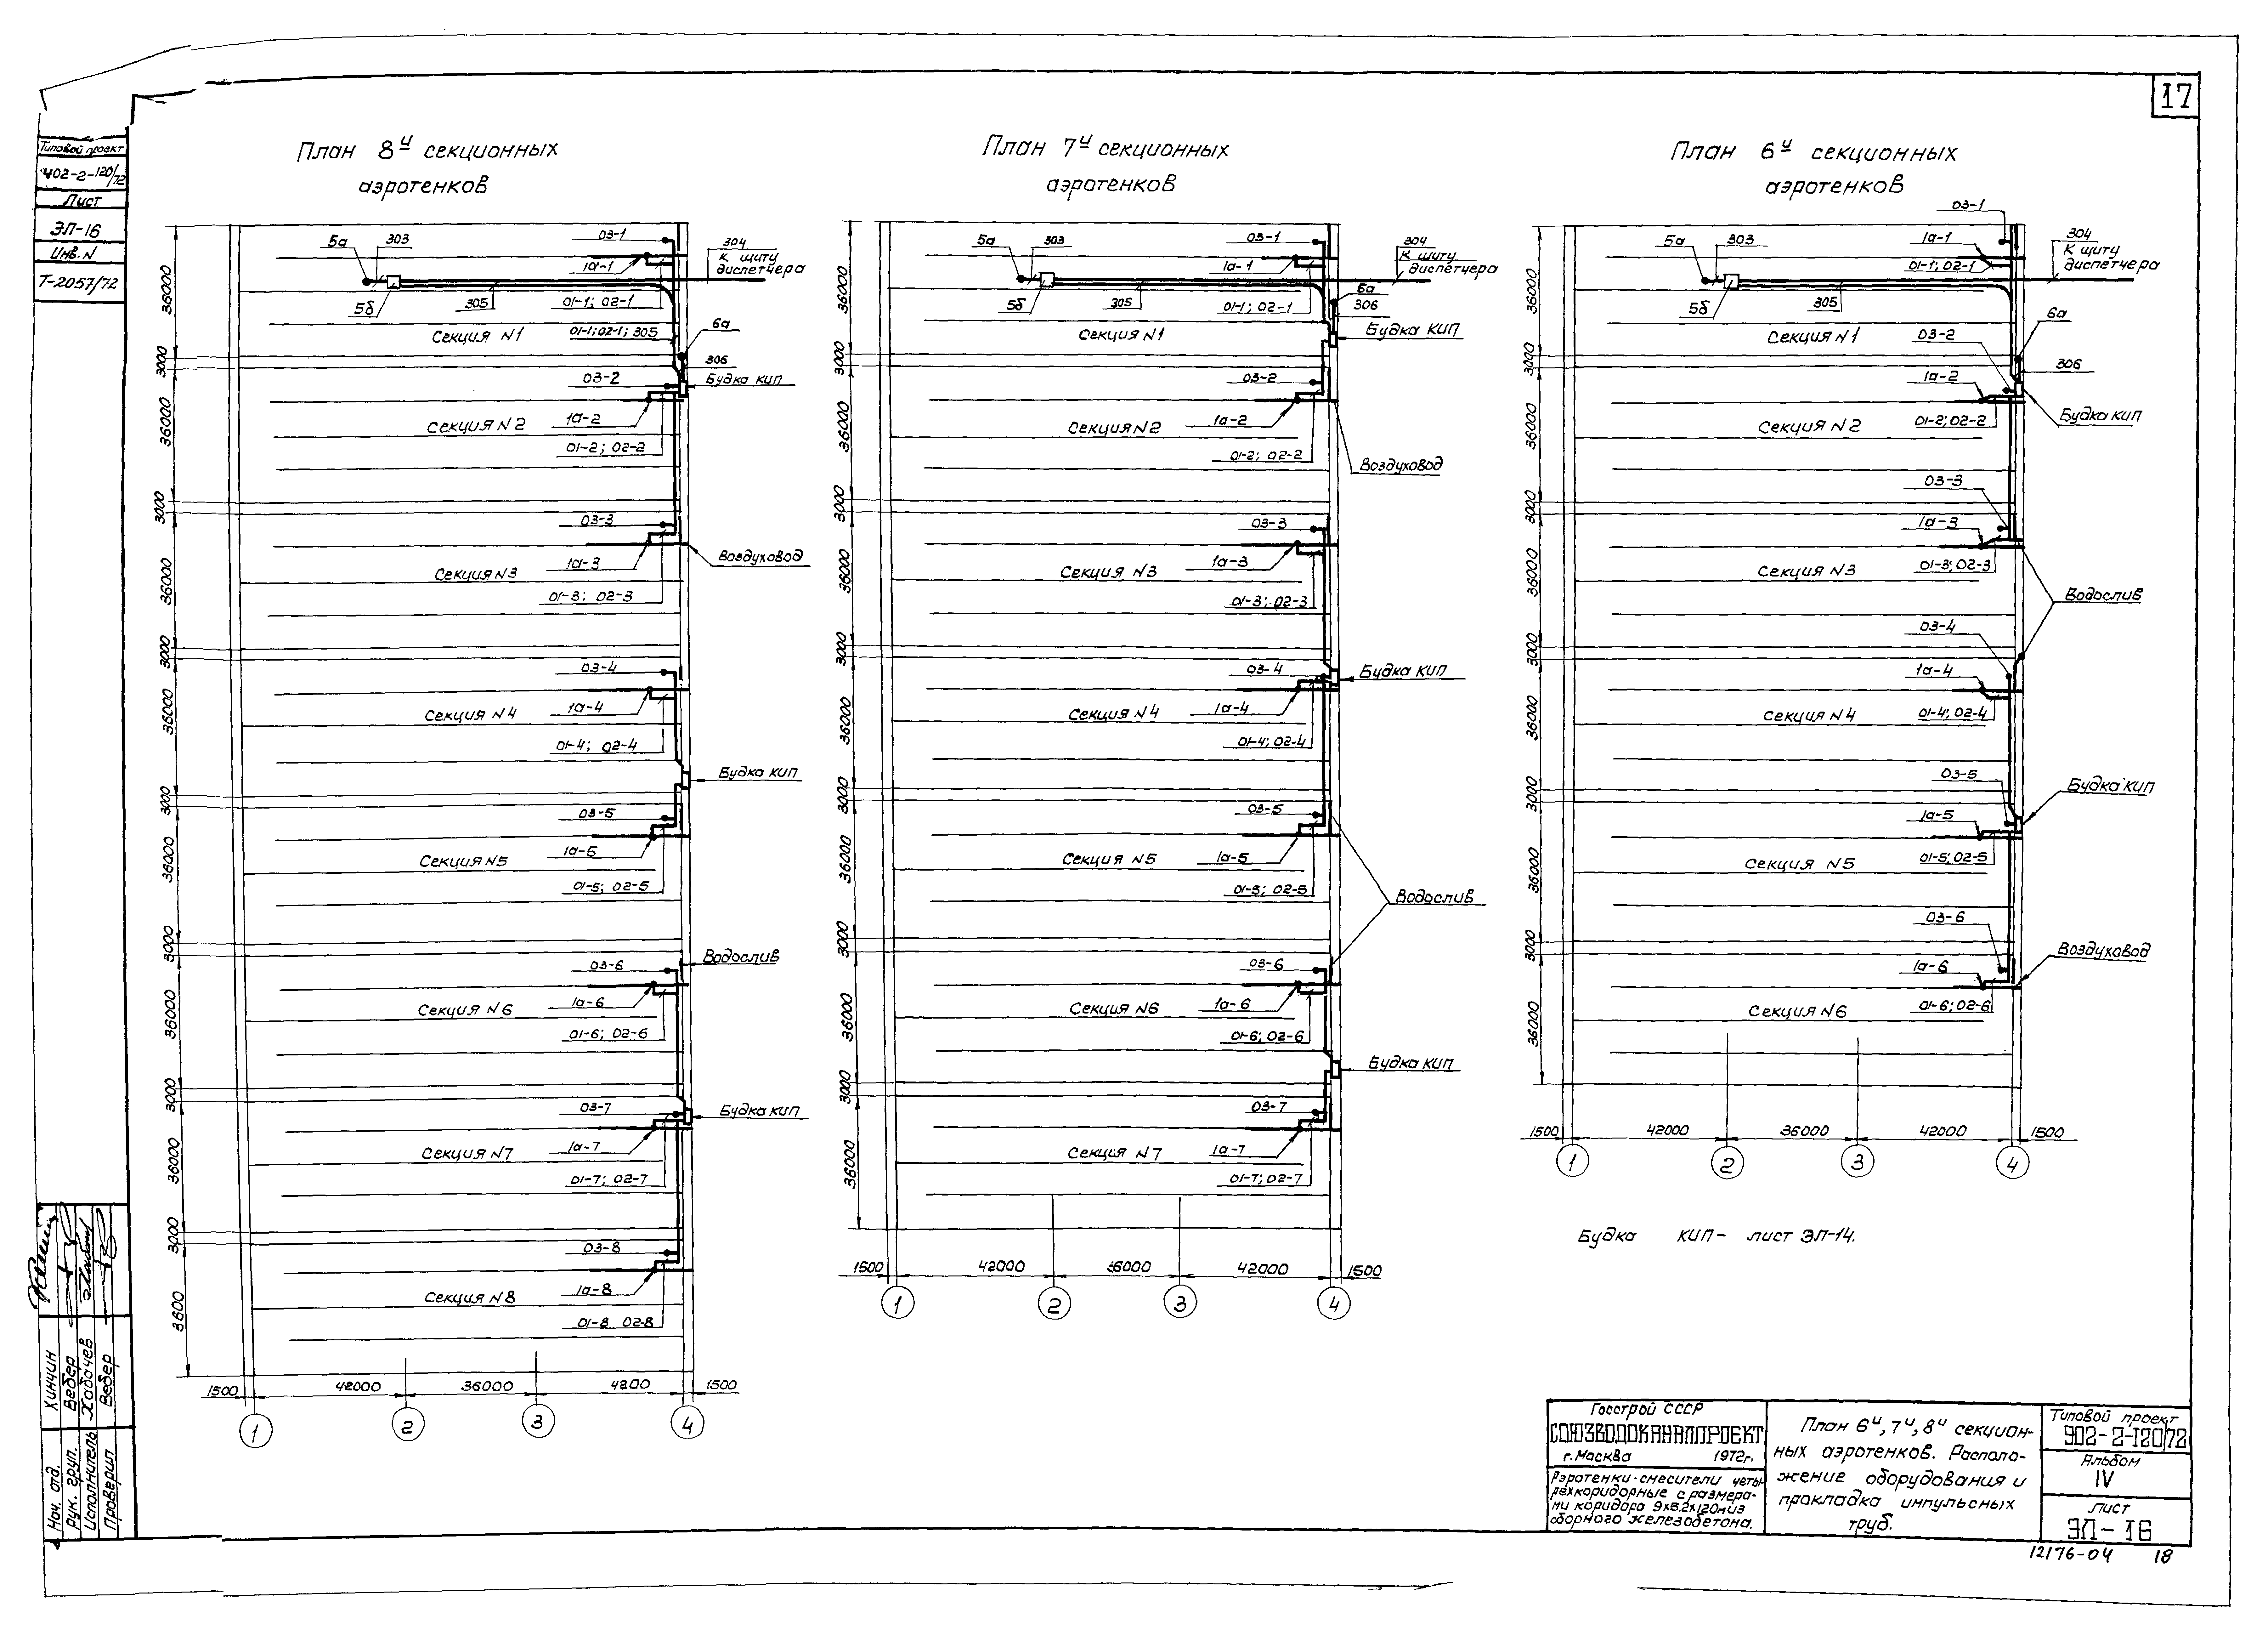 17
Типовой проект
902-2-120/72
Лист
ЭЛ-16
Инв. N
Т-2057/72
План 8й секционных
аэротенков
5а
303
03-1
304
К щиту
диспетчера
1а-1
5б
305
01-1; 02-1
Секция N1
01-1; 02-1; 305
6а
306
03-2
Будка КИП
Секция N2
1а-2
01-2; 02-2
03-3
Воздуховод
Секция N3
1а-3
01-3; 02-3
03-4
Секция N4
1а-4
01-4; 02-4
Будка КИП
03-5
Секция N5
1а-5
01-5; 02-5
Водослив
03-6
Секция N6
1а-6
01-6; 02-6
03-7
Будка КИП
Секция N7
1а-7
01-7; 02-7
03-8
Секция N8
1а-8
01-8 02-8
36000
3000
36000
3000
36000
3000
36000
3000
36000
3000
36000
3000
36000
3000
3600
1500 42000 36000 4200 1500
1 2 3 4
План 7й секционных
аэротенков
5а
303
03-1
304
К щиту
диспетчера
1а-1
5б
305
01-1; 02-1
6а
306
Секция N1
Будка КИП
03-2
Секция N2
1а-2
01-2; 02-2
Воздуховод
03-3
Секция N3
1а-3
01-3; 02-3
03-4
Будка КИП
Секция N4
1а-4
01-4; 02-4
03-5
Секция N5
1а-5
01-5; 02-5
Водослив
03-6
Секция N6
1а-6
01-6; 02-6
Будка КИП
03-7
Секция N7
1а-7
01-7; 02-7
36000
3000
36000
3000
36000
3000
36000
3000
36000
3000
36000
3000
36000
1500 42000 36000 42000 1500
1 2 3 4
План 6й секционных
аэротенков
03-1
5а
303
1а-1
304
К щиту
диспетчера
01-1; 02-1
5б
305
6а
Секция N1
03-2
306
1а-2
Секция N2
01-2; 02-2
Будка КИП
03-3
1а-3
Секция N3
01-3; 02-3
Водослив
03-4
1а-4
Секция N4
01-4; 02-4
03-5
Будка КИП
1а-5
Секция N5
01-5; 02-5
03-6
Воздуховод
1а-6
Секция N6
01-6; 02-6
36000
3000
36000
3000
36000
3000
36000
3000
36000
3000
36000
1500 42000 36000 42000 1500
1 2 3 4
Будка КИП- лист ЭЛ-14.
Нач. отд. Хинчин
Рук. груп. Вебер
Исполнитель Хабачев
Проверил Вебер
Госстрой СССР
СОЮЗВОДОКАНАЛПРОЕКТ
г. Москва 1972г.
Аэротенки-смесители четы-
рехкоридорные с размера-
ми коридора 9х5,2х120м из
сборного железобетона.
План 6й, 7й, 8й секцион-
ных аэротенков. Располо-
жение оборудования и
прокладка импульсных
труб.
Типовой проект
902-2-120/72
Альбом
IV
Лист
ЭЛ-16
12176-04 18